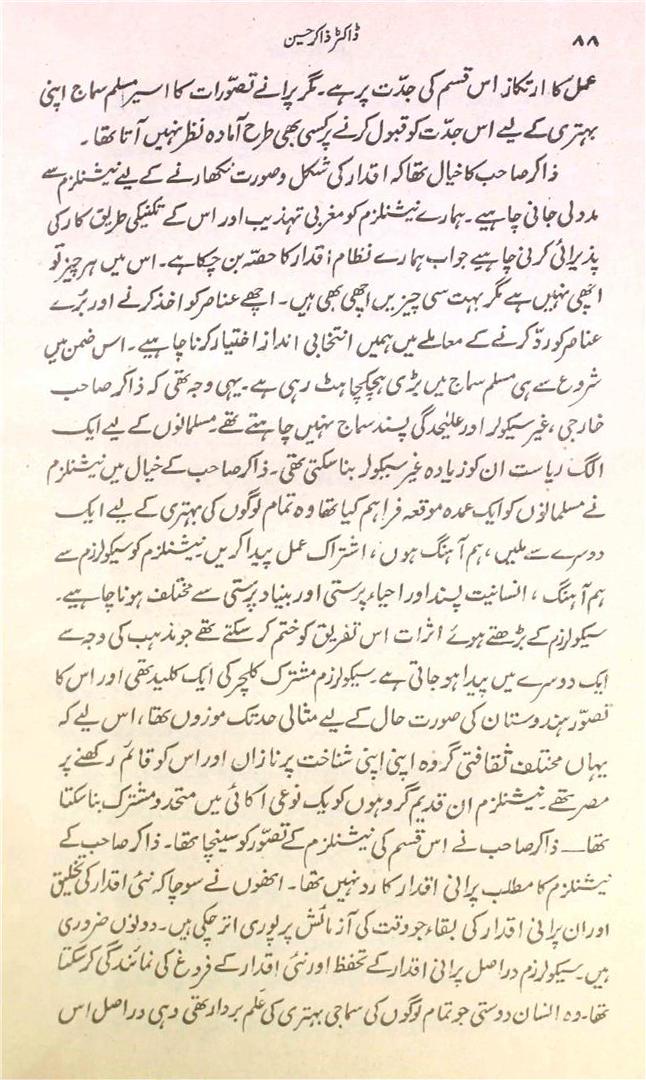 ۸۸ ڈاکٹر ذاکر حسین
عمل کا ارتکاز اس قسم کی جدّت پر ہے۔ مگر پرانے تصوّرات کا اسیر مسلم سماج اپنی
بہتری کے لیے اس جدّت کو قبول کرنے پر کسی بھی طرح آمادہ نظر نہیں آتا تھا۔
ذاکر صاحب کا خیال تھا کہ اقدار کی شکل وصورت نکھارنے کے لیے نیشنلزم سے
مدد لی جانی چاہیے۔ ہمارے نیشنلزم کو مغربی تہذیب اور اس کے تکنیکی طریق کار کی
پذیرائی کرنی چاہیے جو اب ہمارے نظام اقدار کا حصّہ بن چکا ہے۔ اس میں ہر چیز تو
اچھی نہیں ہے مگر بہت سی چیزیں اچھی بھی ہیں۔ اچھے عناصر کو اخذ کرنے اور بُرے
عناصر کو ردّ کرنے کے معاملے میں ہمیں انتخابی انداز اختیار کرنا چاہیے۔ اس ضمن میں
شروع سے ہی مسلم سماج میں بڑی ہچکچاہٹ رہی ہے۔ یہی وجہ تھی کہ ذاکر صاحب
خارجی، غیر سیکولر اور علیٰحدگی پسند سماج نہیں چاہتے تھے۔ مسلمانوں کے لیے ایک
الگ ریاست ان کو زیادہ غیر سیکولر بنا سکتی تھی۔ ذاکر صاحب کے خیال میں نیشنلزم
نے مسلمانوں کو ایک عمدہ موقعہ فراہم کیا تھا وہ تمام لوگوں کی بہتری کے لیے ایک
دوسرے سے ملیں، ہم آہنگ ہوں، اشتراک عمل پیدا کریں۔ نیشنلزم کو سیکولرزم سے
ہم آہنگ، انسانیت پسند اور احیاء پرستی اور بنیاد پرستی سے مختلف ہونا چاہیے۔
سیکولرزم کے بڑھتے ہوئے اثرات اس تفریق کو ختم کر سکتے تھے جو مذہب کی وجہ سے
ایک دوسرے میں پیدا ہو جاتی ہے۔ سیکولرزم مشترک کلچر کی ایک کلید تھی اور اس کا
تصوّر ہندوستان کی صورت حال کے لیے مثالی حد تک موزوں تھا، اس لیے کہ
یہاں مختلف ثقافتی گروہ اپنی اپنی شناخت پر نازاں اور اس کو قائم رکھنے پر
مصر تھے۔ نیشنلزم ان قدیم گروہوں کو یک نوعی اکائی میں متحد و مشترک بنا سکتا
تھا۔ ذاکر صاحب نے اس قسم کی نیشنلزم کے تصوّر کو سینچا تھا۔ ذاکر صاحب کے
نیشنلزم کا مطلب پرانی اقدار کا رد نہیں تھا۔ انھوں نے سوچا کہ نئی اقدار کی تخلیق
اور ان پرانی اقدار کی بقاء جو وقت کی آزمائش پر پوری اتر چکی ہیں۔ دونوں ضروری
ہیں۔ سیکولرزم دراصل پرانی اقدار کے تحفظ اور نئی اقدار کے فروغ کی نمائندگی کر سکتا
تھا۔ وہ انسان دوستی جو تمام لوگوں کی سماجی بہتری کی عَلم بردار تھی وہی دراصل اس